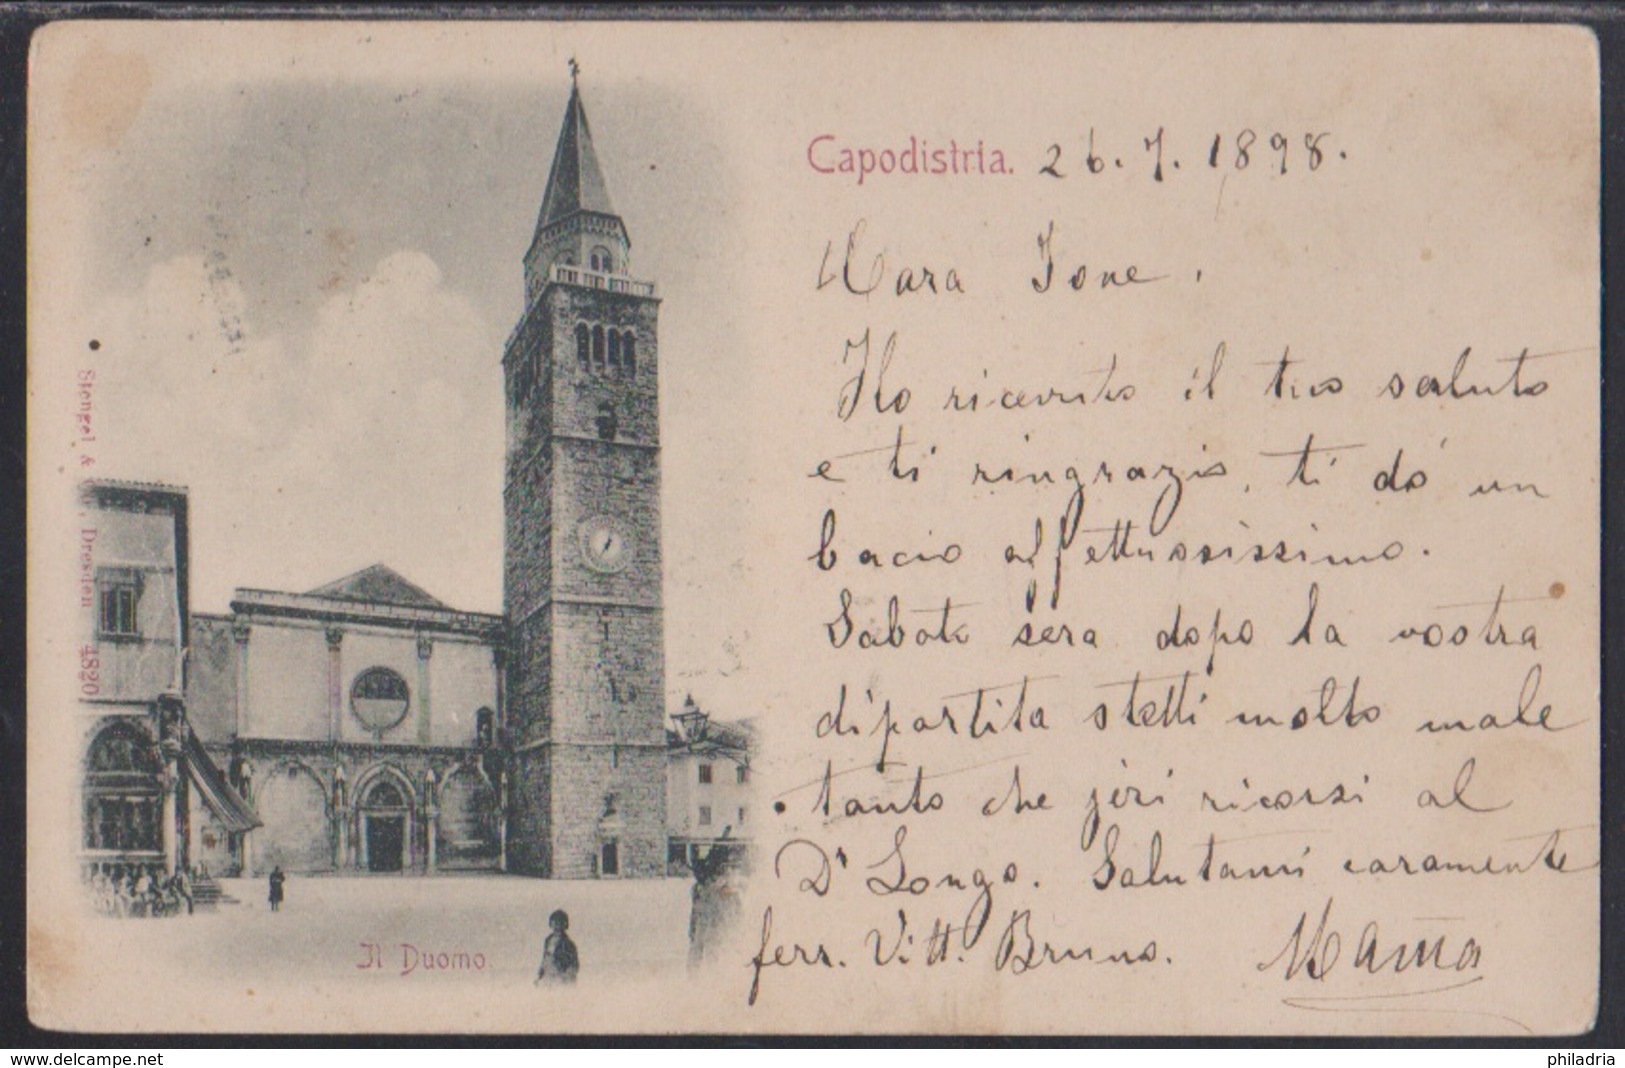 Capodistria. 26.7.1898.
Cara Ione,
Ho ricevuto il tuo saluto
e ti ringrazio, ti dó un
bacio affettussissimo.
Sabato sera dopo la vostra
dipartita stetti molto male
tanto che jeri ricorsi al
Dr Longo. Salutami caramente
ferr. Vitt. Bruno. Mama
Stengel & Dresden 4820
Il Duomo.
www.delcampe.net
philadria